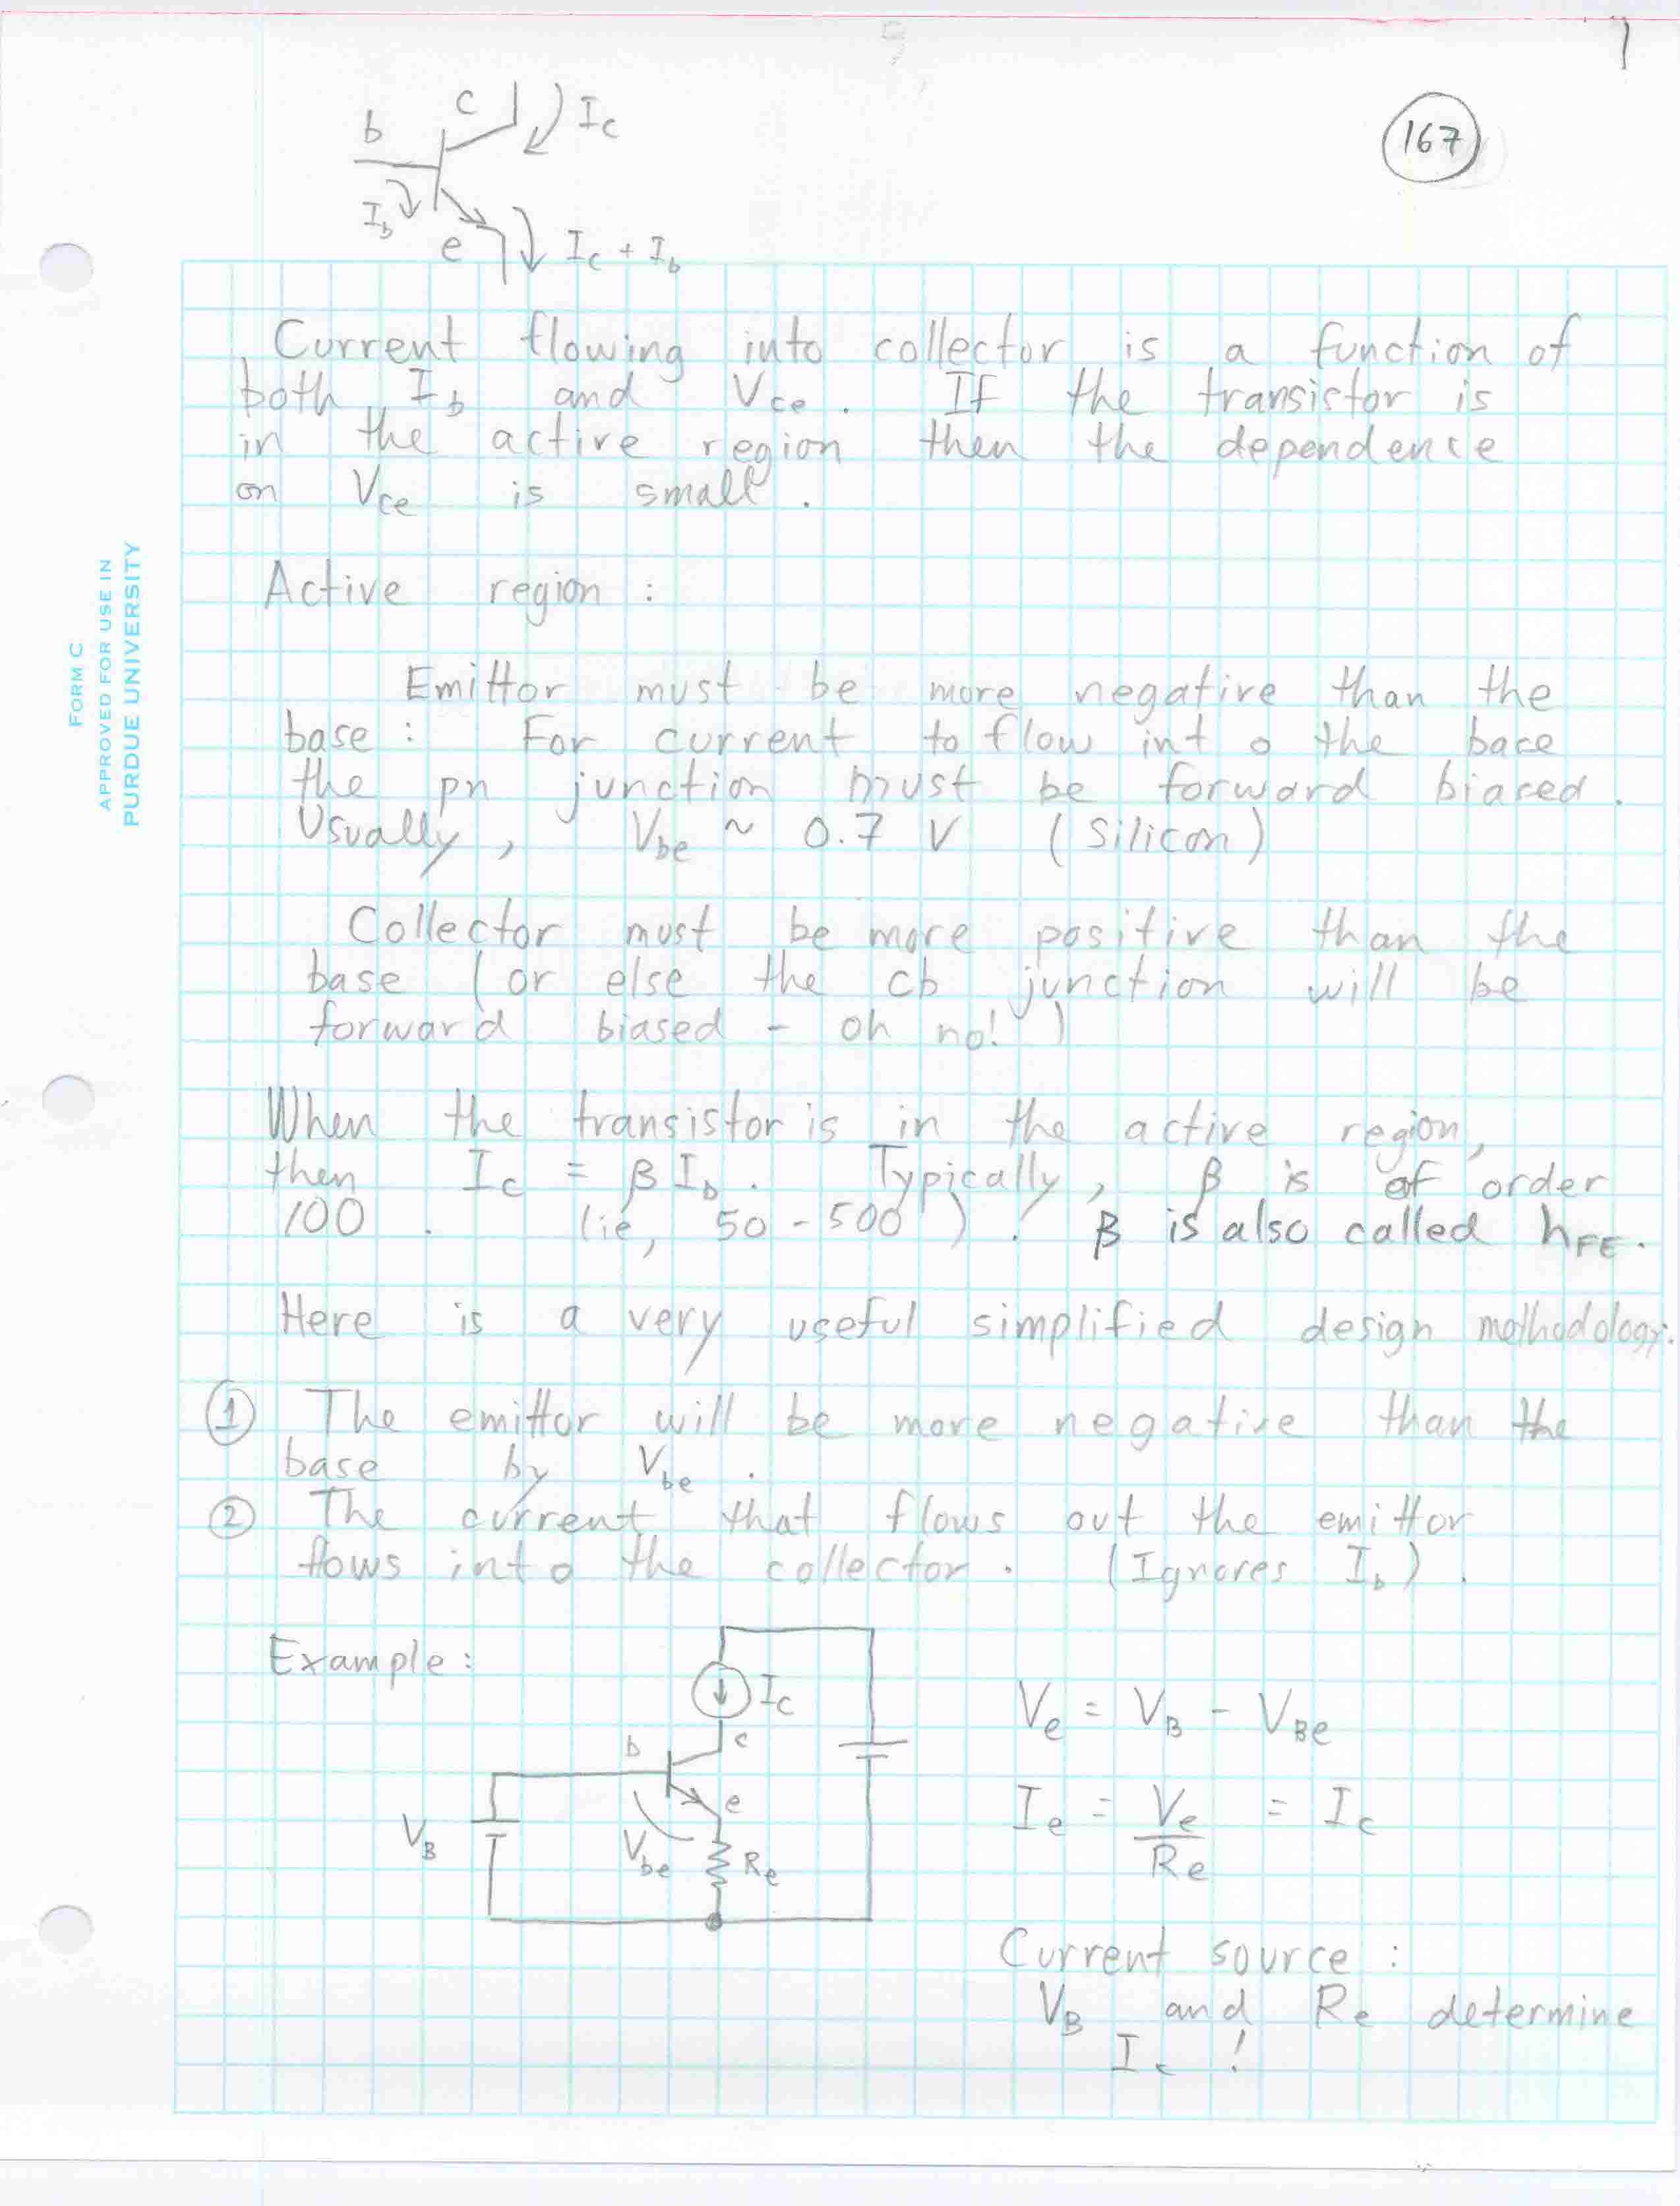 167
b
c
Ic
Ib
e
Ic + Ib
Current flowing into collector is a function of
both Ib and Vce. If the transistor is
in the active region then the dependence
on Vce is small.
FORM C
APPROVED FOR USE IN
PURDUE UNIVERSITY
Active region:
Emittor must be more negative than the
base: For current to flow into the base
the pn junction must be forward biased.
Usually, Vbe ~ 0.7 V (Silicon)
Collector must be more positive than the
base (or else the cb junction will be
forward biased - oh no!)
When the transistor is in the active region,
then Ic = β Ib. Typically, β is of order
100. (ie, 50 - 500). β is also called hFE.
Here is a very useful simplified design methodology.
① The emittor will be more negative than the
base by Vbe.
② The current that flows out the emittor
flows into the collector. (Ignores Ib).
Example:
Ic
b
c
e
VB
Vbe
Re
Ve = VB - VBe
Ie = Ve / Re = Ic
Current source:
VB and Re determine
Ic!